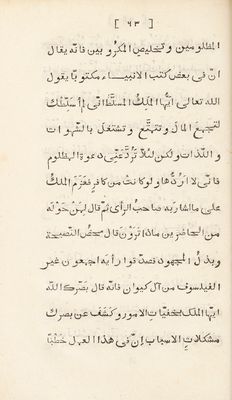 [ ٩٣ ]
المظلومين وتخليص المكروبين فانه يقال
انّ في بعض كتب الانبياء مكتوبا يقول
الله تعالى ايّها الملك المسلّط اني لم اسلّطك
لتجمع المال وتتمتّع وتشتغل بالشهوات
واللذّات ولكن لئلا تردّ عنّي دعوة المظلوم
فاني لا اردّها ولو كانت من كافر فعزم الملك
على ما اشار به صاحب الرأي ثم قال لمن حوله
من الحاضرين ماذا ترون قال محض النصيحة
وبذل المجهود فصدقوا رأيه اجمعون غير
الفيلسوف من آل كيوان فانه قال بصّرك الله
ايّها الملك بخفيّات الامور وكشف عن بصرك
مشكلات الاسباب انّ في هذا العمل خطبا